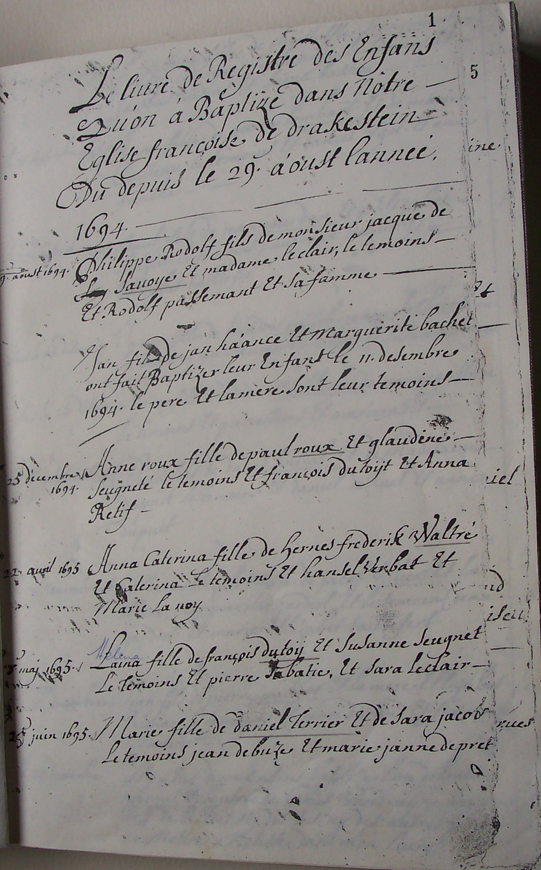 1
Le livre de Registre des Enfans
Qu'on á Baptize dans Nôtre —
Eglise françoise de drakestein
Du depuis le 29. áoust lanneé.
1694.
aust 1694. Philippe Rodolf fils de monsieur jacque de
Savoye Et madame leclair, le temoins —
Et Rodolf passemant Et sa famme —
Jan fils de jan háance Et marguerite bachet —
ont fait Baptizer leur Enfant le 11. desembre
1694. le pere Et lamere sont leur temoins —
25 decembre 1694. Anne roux fille de paul roux Et glaudine —
Seugneté le temoins Et françois dutoÿt Et Anna
Retif —
22 avril 1695 Anna Caterina fille de hernes frederik Waltré
Et Caterina le temoins Et hansel verbat Et
Marie la noy
maj 1695. Laina fille de françois dutoy Et Susanne Seugnet
Le temoins Et pierre Sabatie, Et sara leclair —
25 juin 1695 Marie fille de daniel Terrier Et de Sara jacob
Le temoins jean debuze Et marie janne de pret
5